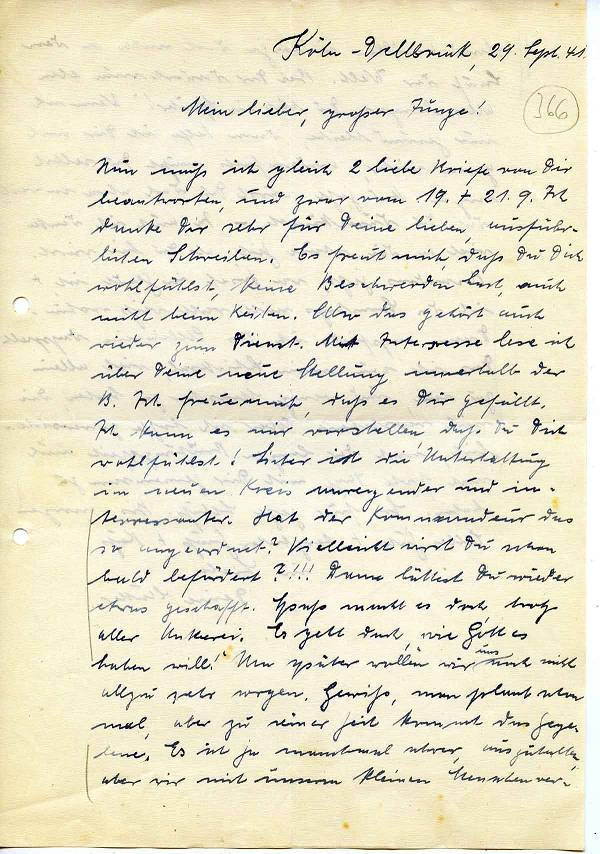 Köln-Dellbrück, 29. Sept. 41.
366
Mein lieber, großer Junge!
Nun muß ich gleich 2 liebe Briefe von Dir
beantworten, und zwar vom 19. + 21.9. Ich
danke Dir sehr für Deine lieben, ausführ-
lichen Schreiben. Es freut mich, daß Du Dich
wohlfühlst, keine Beschwerden hast, auch
nicht beim Reiten. Also das gehört auch
wieder zum Dienst. Mit Interesse lese ich
über Deine neue Stellung innerhalb der
B. Ich freue mich, daß es Dir gefällt.
Ich kann es mir vorstellen, daß Du Dich
wohlfühlst! Sicher ist die Unterhaltung
im neuen Kreis anregender und in-
teressanter. Hat der Kommandeur das
so angeordnet? Vielleicht wirst Du schon
bald befördert?!!! Dann hättest Du wieder
etwas geschafft. Spaß macht es doch, trotz
aller Unkerei. Es geht doch, wie Gott es
haben will! Um später wollen wir uns auch nicht
allzu sehr sorgen. Gewiß, man plant schon
mal, aber zu seiner Zeit kommt das Gege-
bene. Es ist ja manchmal schwer, auszuhalten,
aber wir mit unserem kleinen Menschenver-